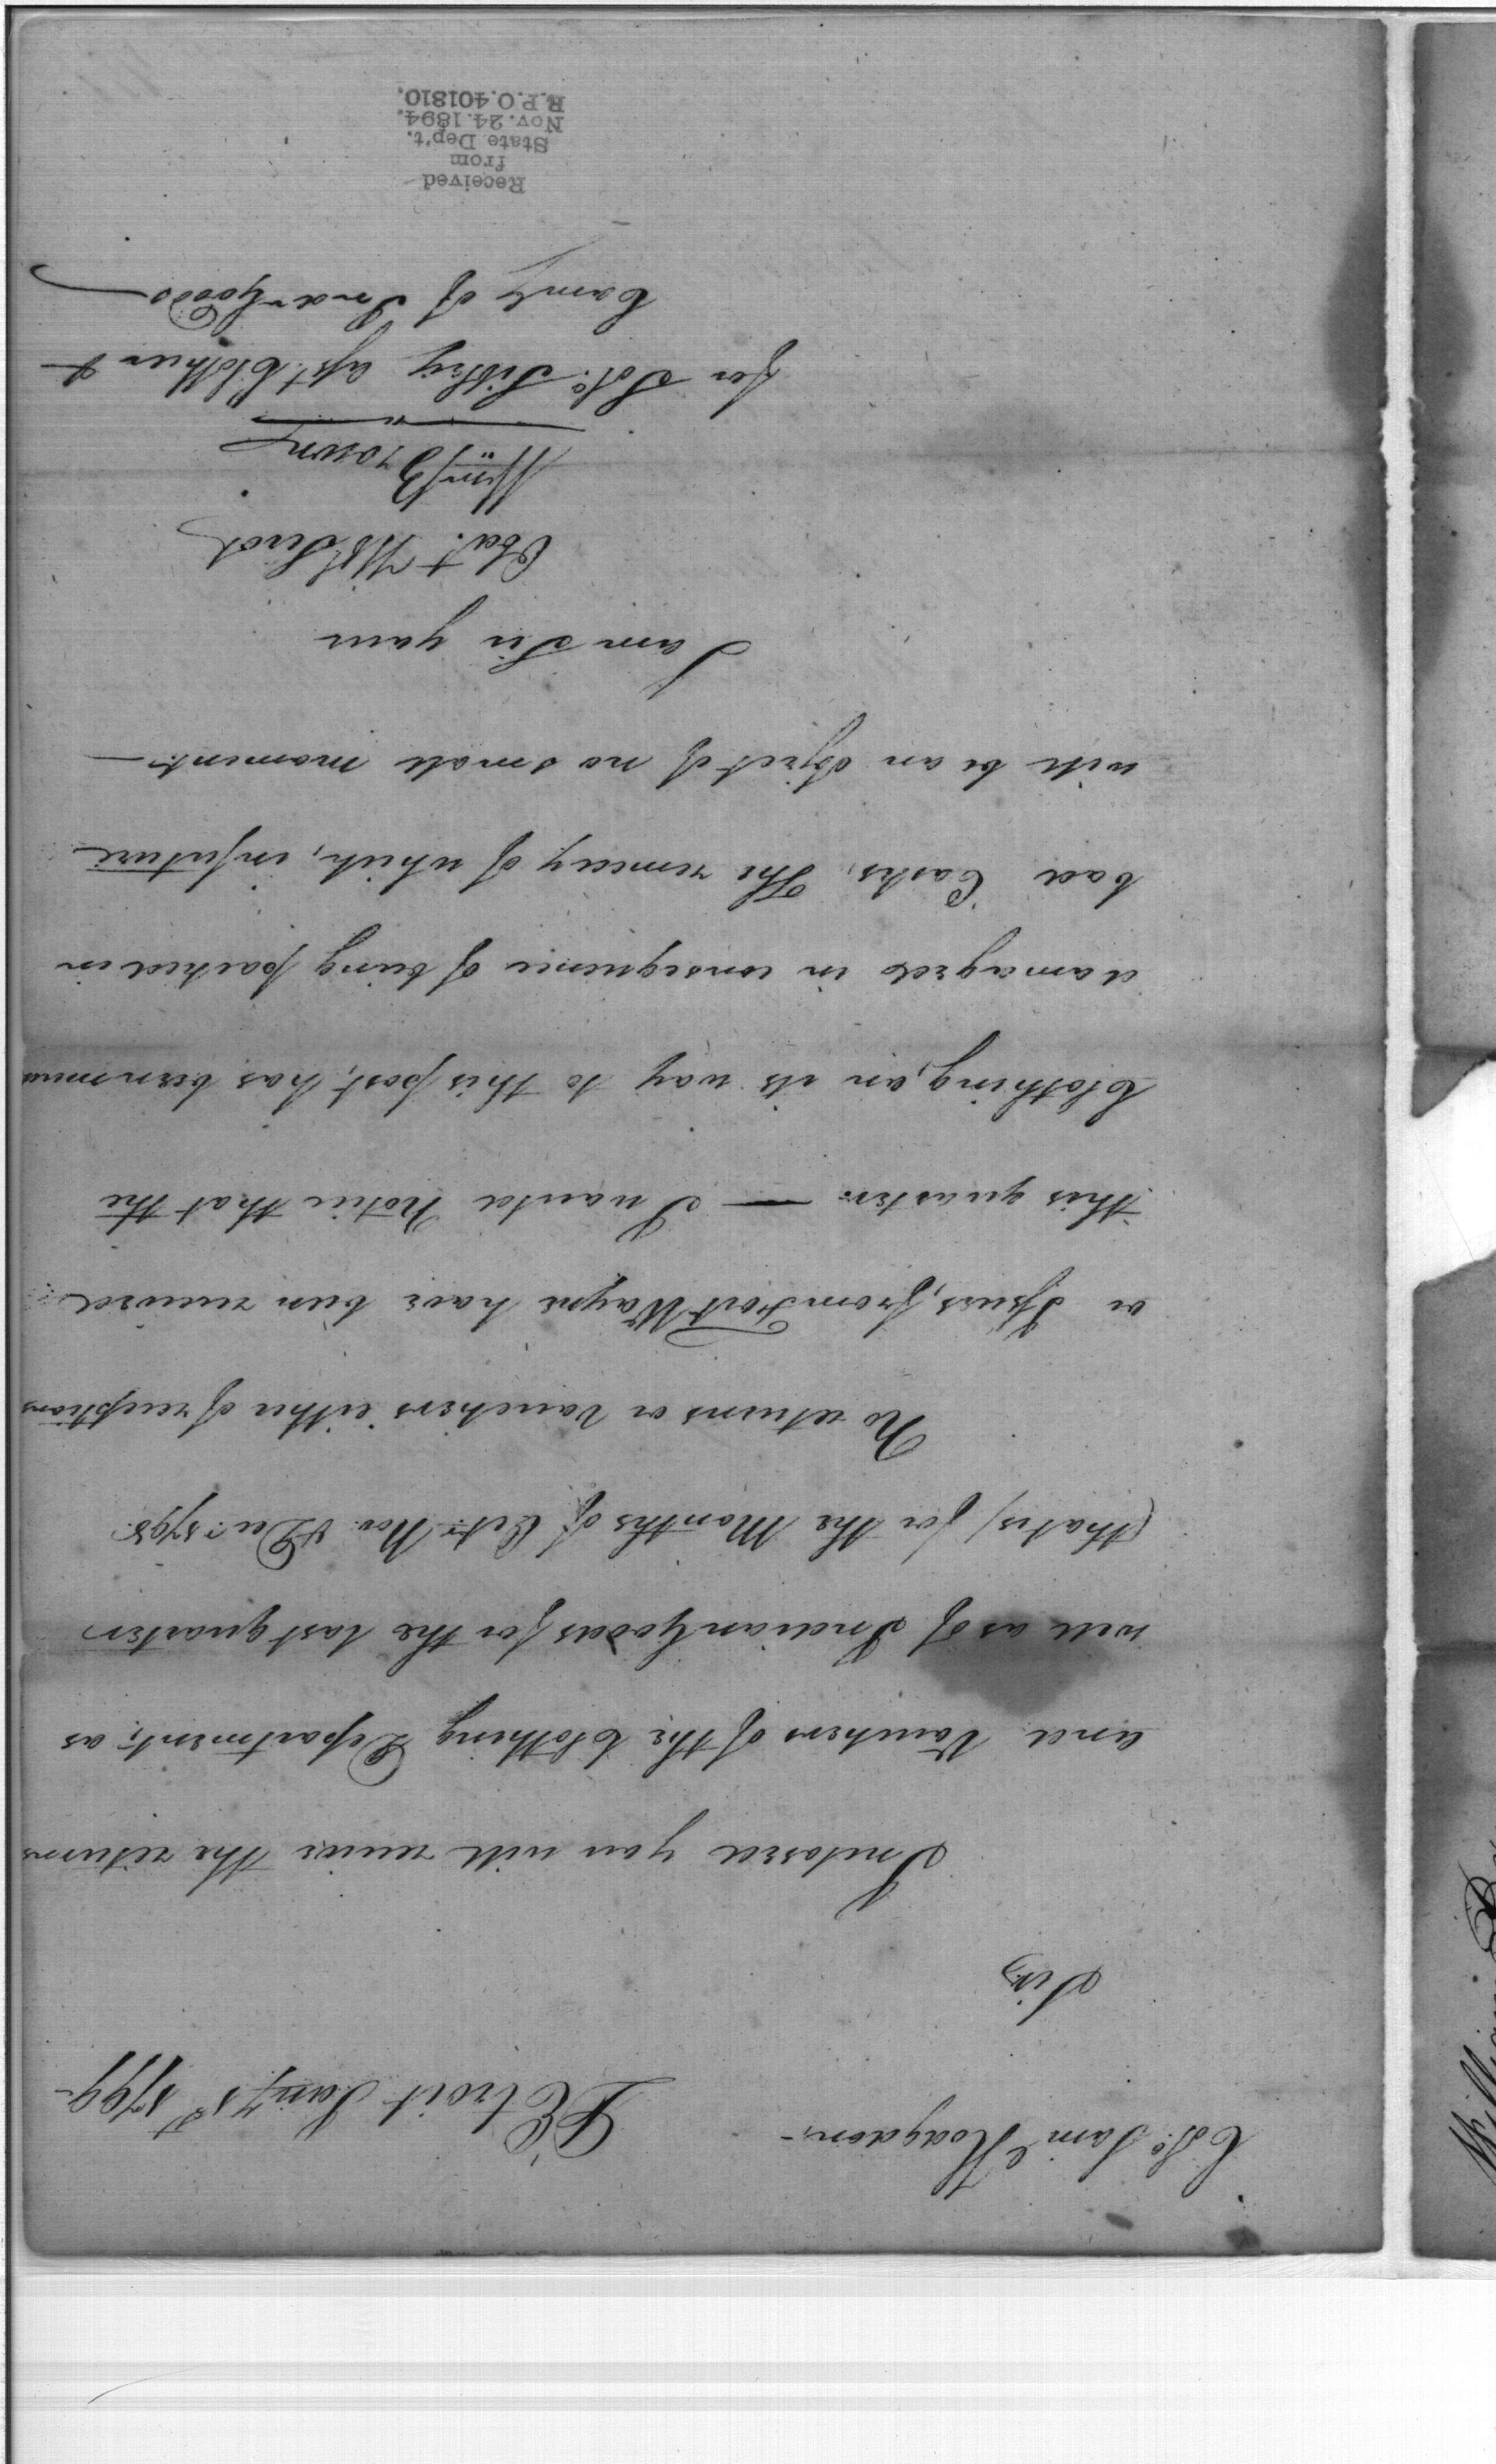 Colo. Saml Hodgdon - DEtroit Jany 1st 1799 -
Sir,
Inclosed you will receive the returns
and Vouchers of the Clothing Department, as
well as of Indian Goods for the last quarter
(that is) for the Months of Octr. Nov. & Decr. 1798.
No returns or Vouchers either of receptions
or Issues, from Fort Wayne have been received
this quarter. — I would Notice that the
Clothing, on its way to this post, has been much
damaged in consequence of being packed in
bad Casks, The remedy of which, in future
will be an object of no small moment. —
I am Sir your
Obdt. Hble Servt
Wm Brown
for Solo. Sibley Asst. Clothier &
Commy of Indn Goods
Received
from
State Dep't.
Nov. 24. 1894.
R.P.O. 401810.
William